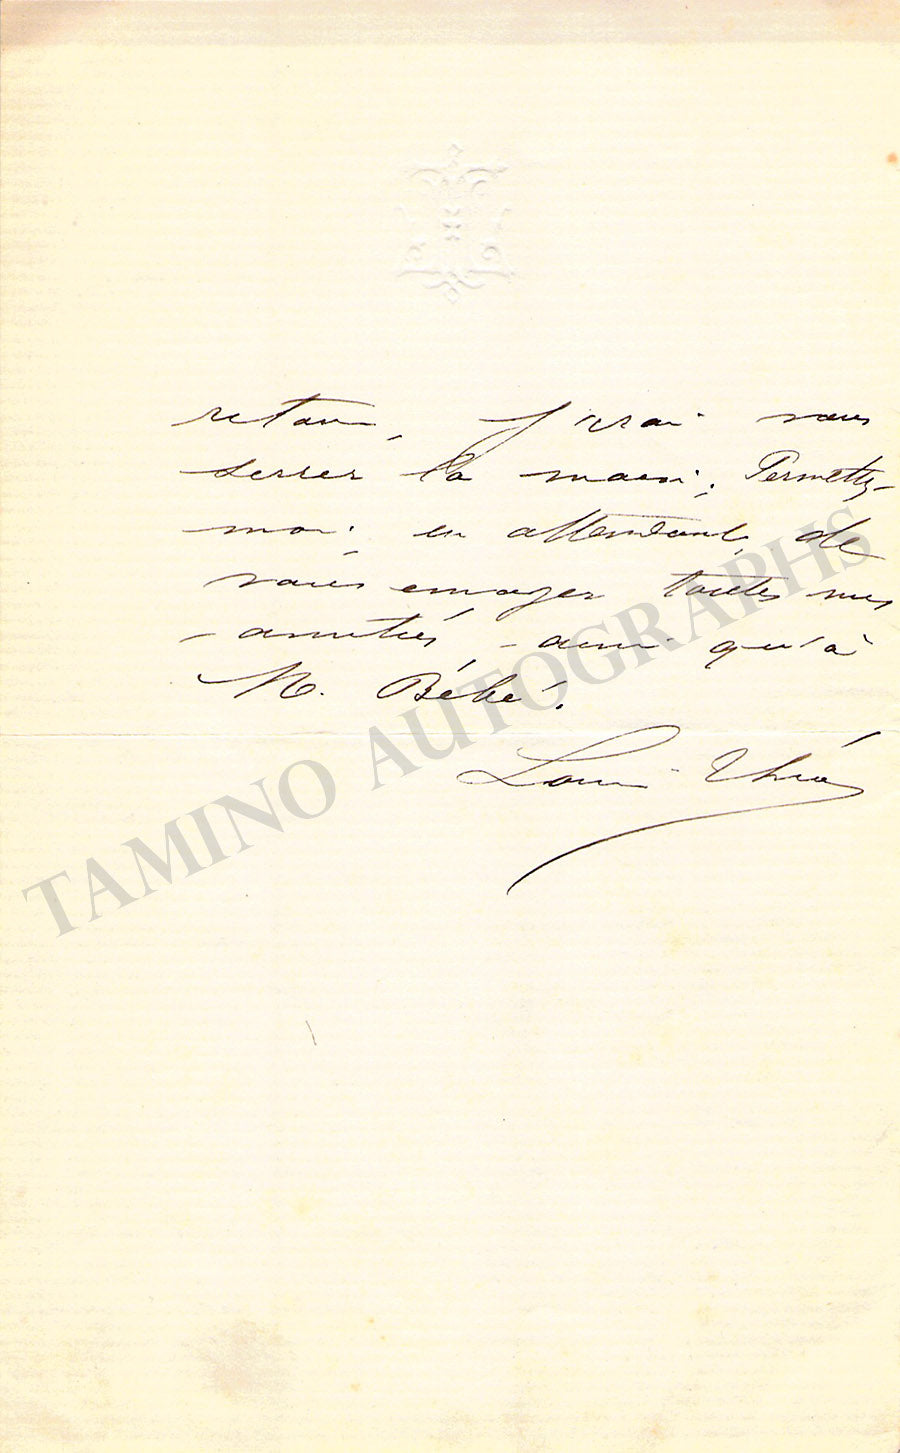 retour, j'irai vous
serrer la main; Permettez-
moi en attendant, de
vous envoyer toutes mes
amitiés, ainsi qu'à
M. Bébé.
Louis
TAMINO AUTOGRAPHS